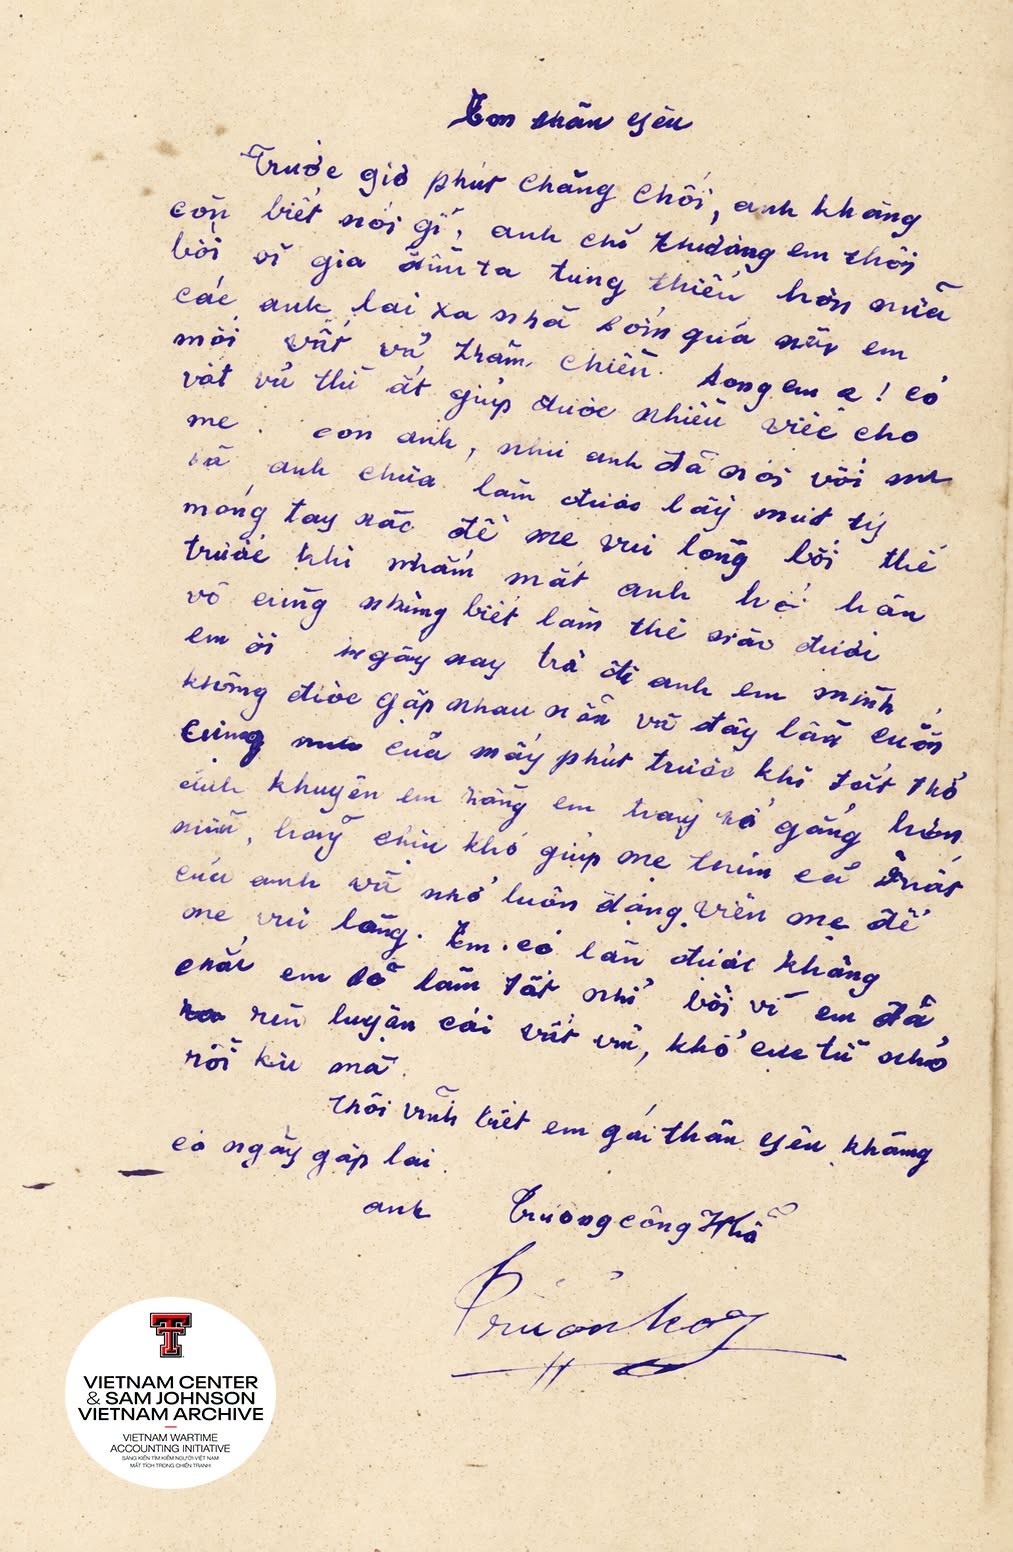 Em thân yêu
Trước giờ phút chăng chối, anh không
còn biết nói gì, anh chỉ thương em thôi
bởi vì gia đình ta túng thiếu hơn nữa
các anh lại xa nhà sớm quá nên em
mới vất vả trăm chiều. Song em ạ! có
vất vả thì ắt giúp được nhiều việc cho
mẹ. còn anh, như anh đã nói với mẹ
là anh chưa làm được lấy một tý
móng tay nào để mẹ vui lòng bởi thế
trước khi nhắm mắt anh hối hận
vô cùng nhưng biết làm thế nào được
em ơi ngày nay trở đi anh em mình
không được gặp nhau nữa và đây lần cuối
cùng của mấy phút trước khi tắt thở
anh khuyên em rằng em hãy cố gắng hơn
nữa, hãy chịu khó giúp mẹ thêm cả phần
của anh và nhớ luôn động viên mẹ để
mẹ vui lòng. Em có làm được không
chắc em sẽ làm tốt nhỉ bởi vì em đã
rèn luyện cái vất vả, khổ cực từ nhỏ
rồi kia mà.
Thôi vĩnh biệt em gái thân yêu không
có ngày gặp lại.
anh Trương công
VIETNAM CENTER
& SAM JOHNSON
VIETNAM ARCHIVE
VIETNAM WARTIME
ACCOUNTING INITIATIVE
SÁNG KIẾN TÌM KIẾM NGƯỜI VIỆT NAM
MẤT TÍCH TRONG CHIẾN TRANH